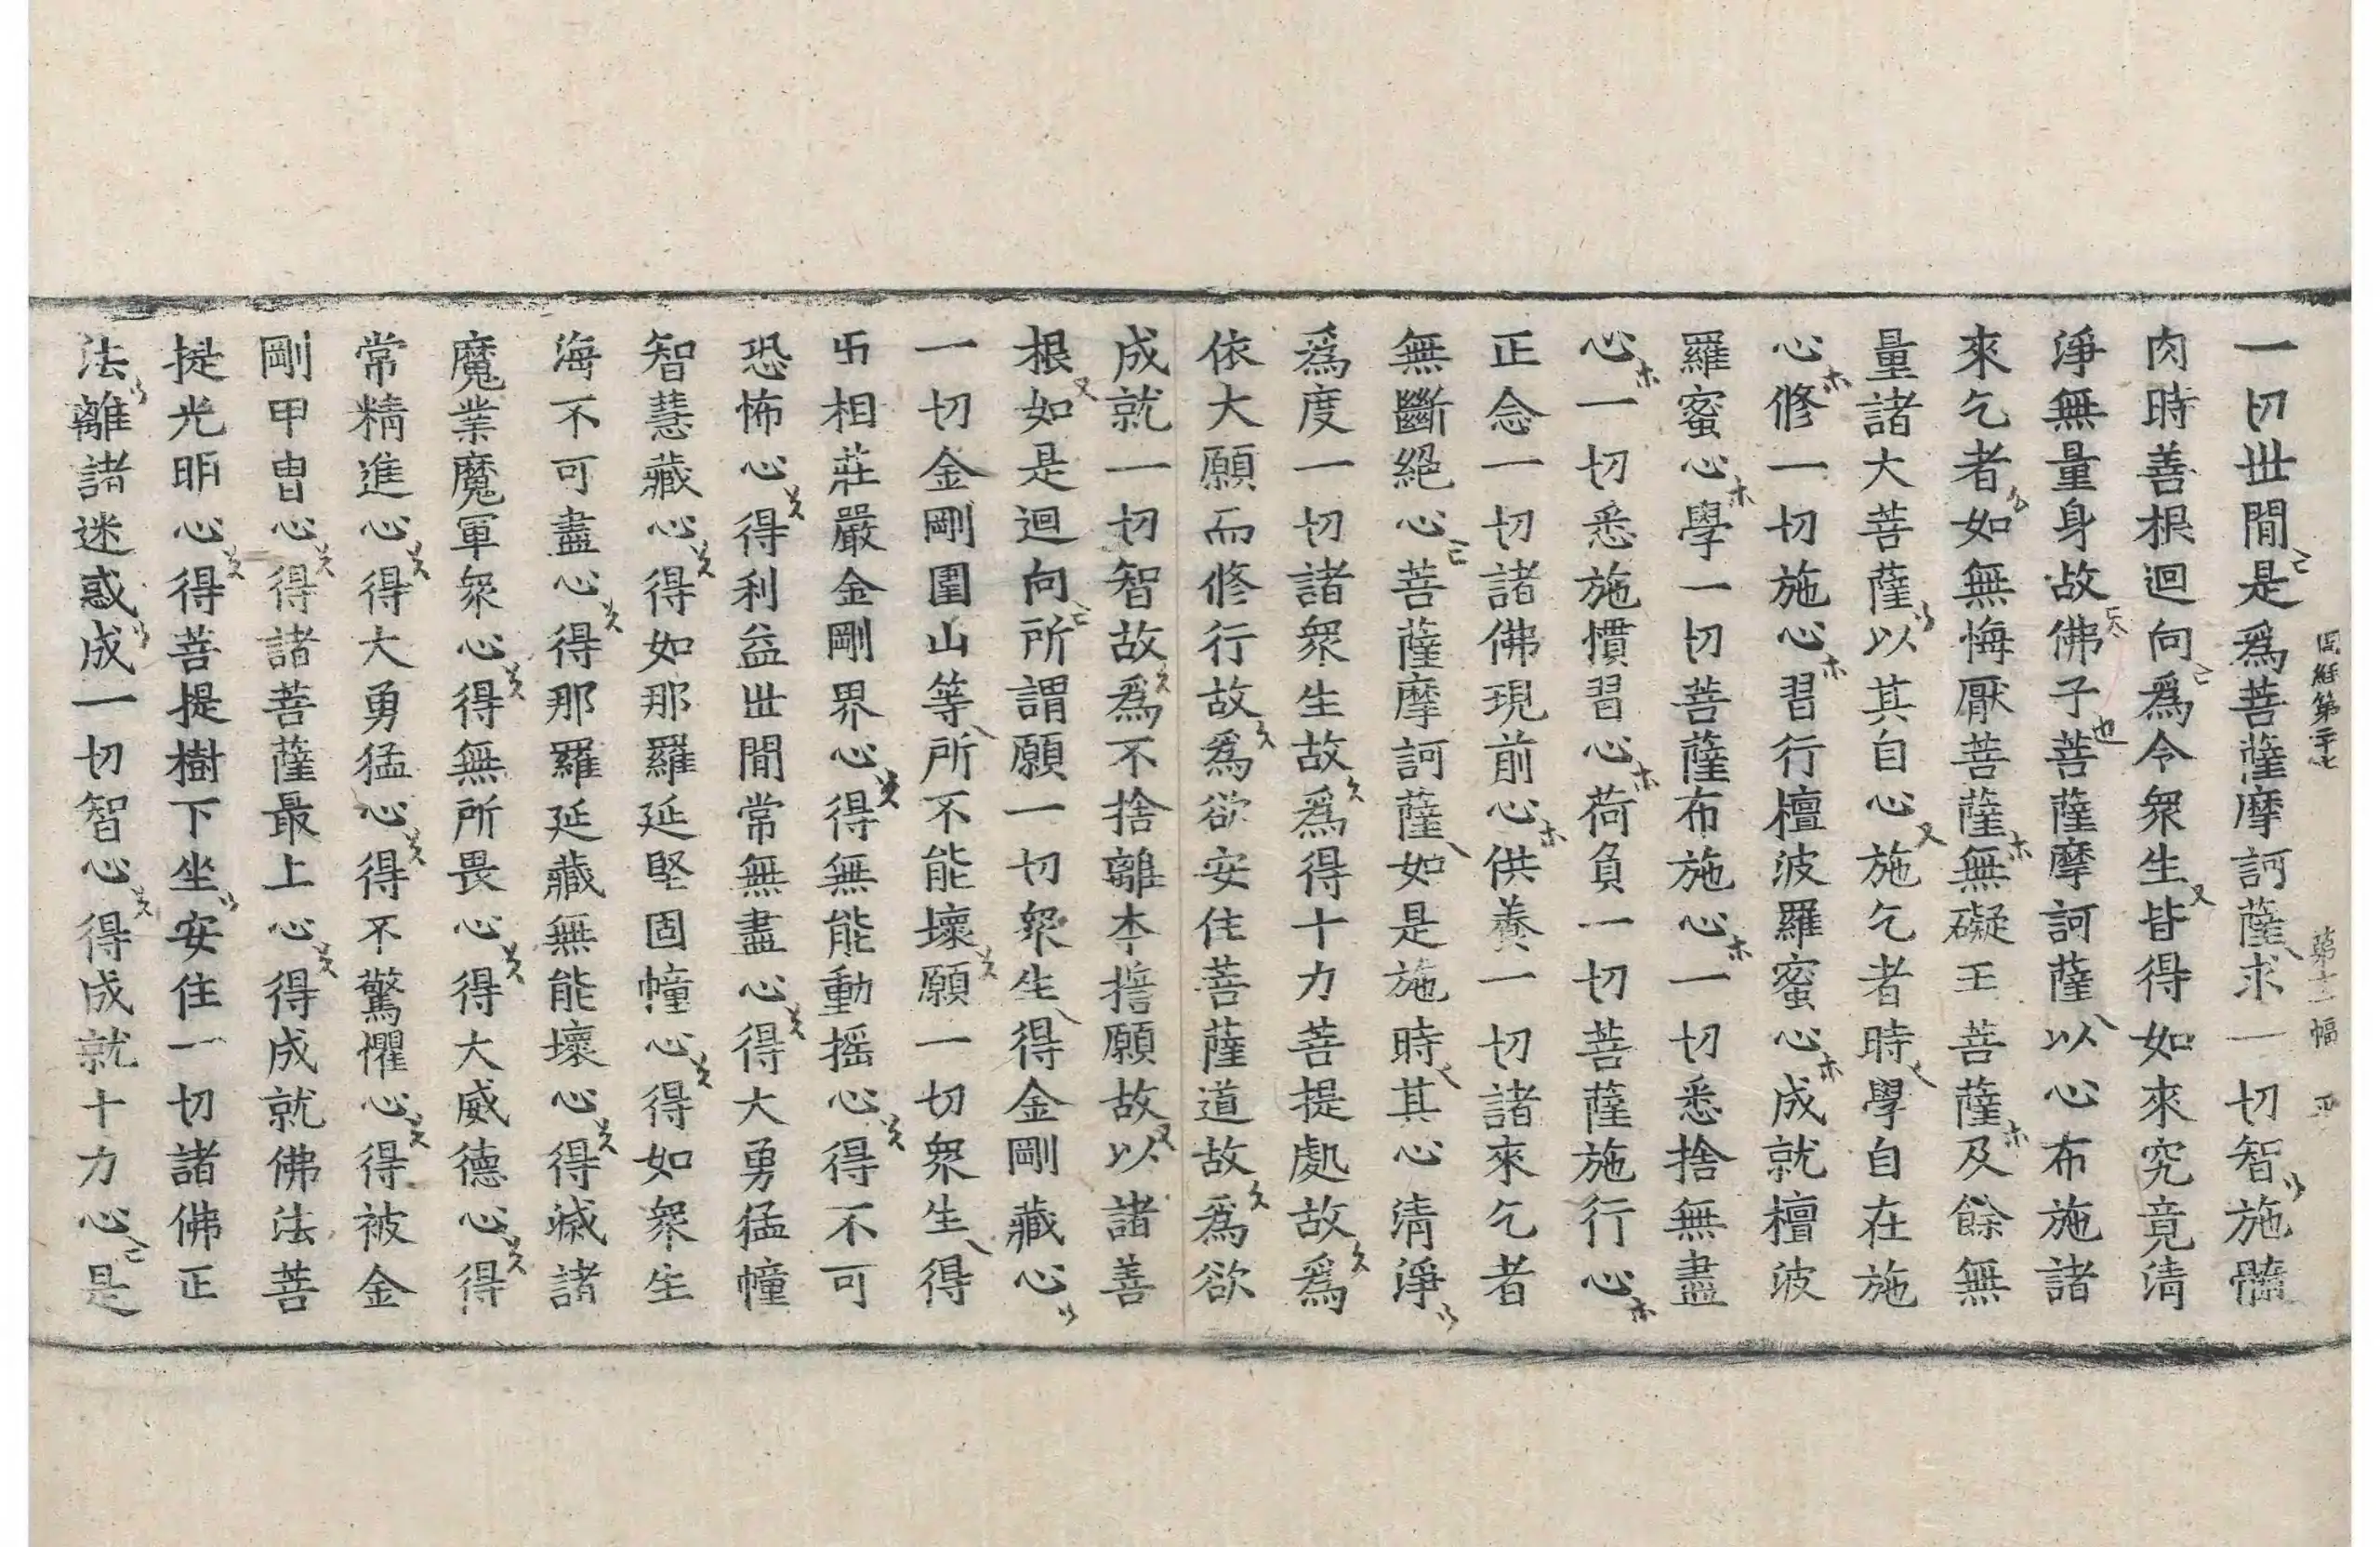 周經第二十七 第十二幅
一切世間是爲菩薩摩訶薩求一切智施髓
肉時善根迴向爲令衆生皆得如來究竟清
淨無量身故佛子菩薩摩訶薩以心布施諸
來乞者如無悔厭菩薩無礙王菩薩及餘無
量諸大菩薩以其自心施乞者時學自在施
心修一切施心習行檀波羅蜜心成就檀波
羅蜜心學一切菩薩布施心一切悉捨無盡
心一切悉施慣習心荷負一切菩薩施行心
正念一切諸佛現前心供養一切諸來乞者
無斷絕心菩薩摩訶薩如是施時其心清淨
爲度一切諸衆生故爲得十力菩提處故爲
依大願而修行故爲欲安住菩薩道故爲欲
成就一切智故爲不捨離本誓願故以諸善
根如是迴向所謂願一切衆生得金剛藏心
一切金剛圍山等所不能壞願一切衆生得
卐相莊嚴金剛界心得無能動搖心得不可
恐怖心得利益世間常無盡心得大勇猛幢
智慧藏心得如那羅延堅固幢心得如衆生
海不可盡心得那羅延藏無能壞心得滅諸
魔業魔軍衆心得無所畏心得大威德心得
常精進心得大勇猛心得不驚懼心得被金
剛甲冑心得諸菩薩最上心得成就佛法菩
提光明心得菩提樹下坐安住一切諸佛正
法離諸迷惑成一切智心得成就十力心是